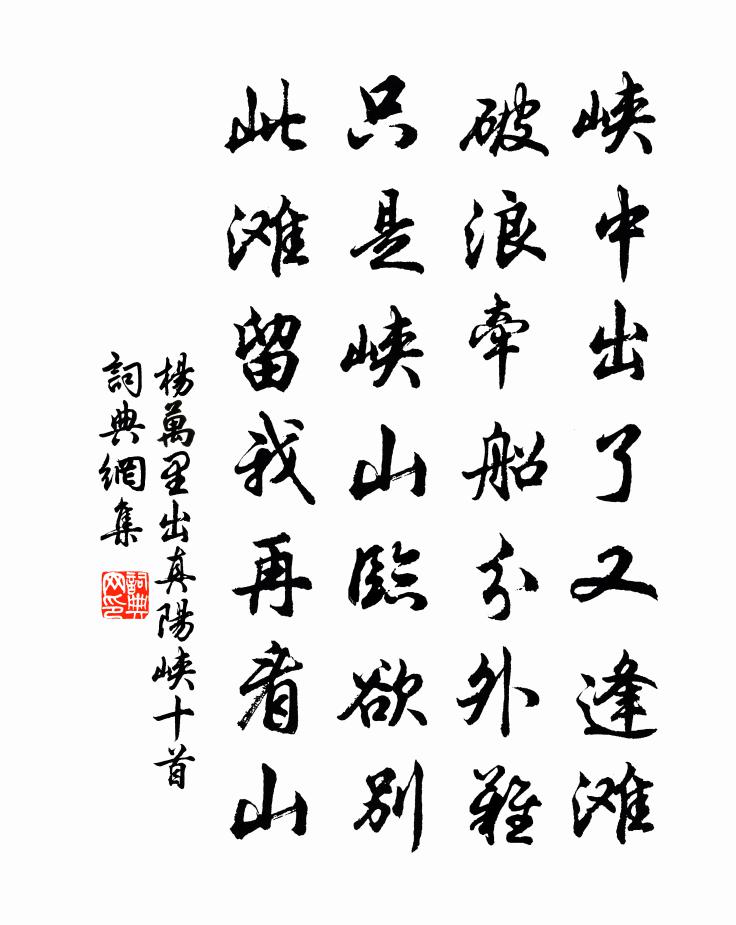 峡中出了又逢滩
破浪牵船分外難
只是峡山臨欲别
此滩留我再看山
楊萬里出真陽峡十首
詞典網集
詞典网印